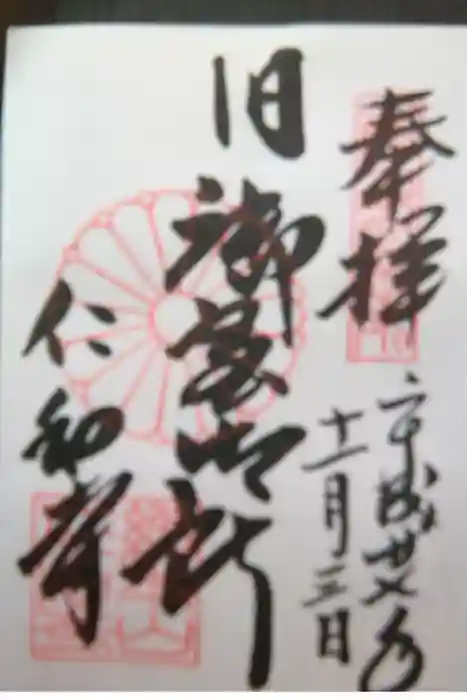 奉拝
平成廿年
十一月三日
旧御室御所
仁和寺